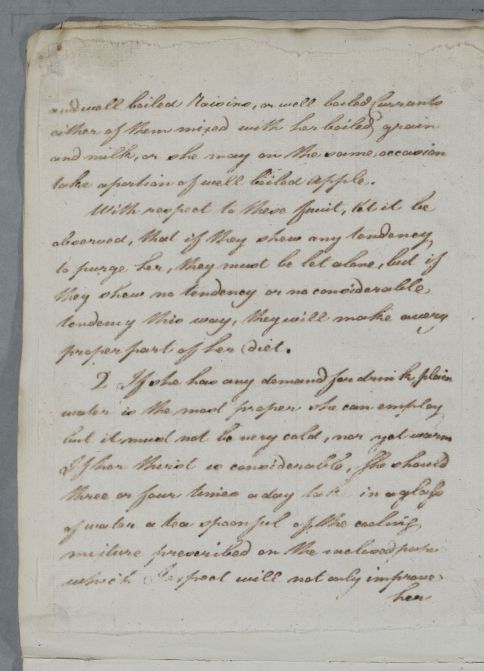 and well boiled Raisins, or well boiled Currants
either of them mixed with her boiled grain
and milk, or she may on the same occasion
take a portion of well boiled apple.
With respect to these fruit, let it be
observed, that if they shew any tendency
to purge her, they must be let alone, but if
they shew no tendency or no considerable
tendency this way, they will make a very
proper part of her Diet.
2 If she has any demand for drink, plain
water is the most proper she can employ
but it must not be very cold, nor yet warm
If her thirst is considerable, She should
three or four times a day take in a glass
of water a tea spoonful of the cooling
mixture prescribed on the inclosed paper
which I expect will not only improve
her